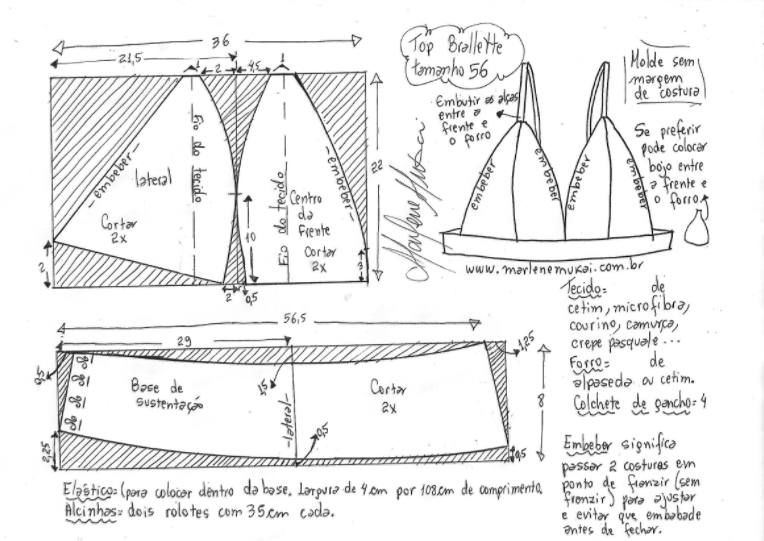 36
21,5
1
2
4,5
1
Fio do tecido
-embeber-
lateral
Cortar
2x
2
2
0,5
10
Fio do tecido
Centro
da
Frente
Cortar
2x
-embeber-
3
22
Top Brallette
tamanho 56
Embutir as alças
entre a
frente e
o forro
Marlene Mukai
embeber
embeber
embeber
embeber
www.marlenemukai.com.br
Molde sem
margem
de costura
Se preferir
pode colocar
bojo entre
a frente e
o forro
56,5
29
0,5
2,25
Base de
sustentação
1,5
-lateral-
0,5
Cortar
2x
1,25
8
0,5
Tecido= de
cetim, microfibra,
courino, camurça,
crepe pasquale...
Forro= de
alpaseda ou cetim.
Colchete de gancho=4
Embeber significa
passar 2 costuras em
ponto de franzir (sem
franzir) para ajustar
e evitar que embabade
antes de fechar.
Elástico= (para colocar dentro da base. Largura de 4cm por 108cm de comprimento.
Alcinhas= dois rolotes com 35cm cada.